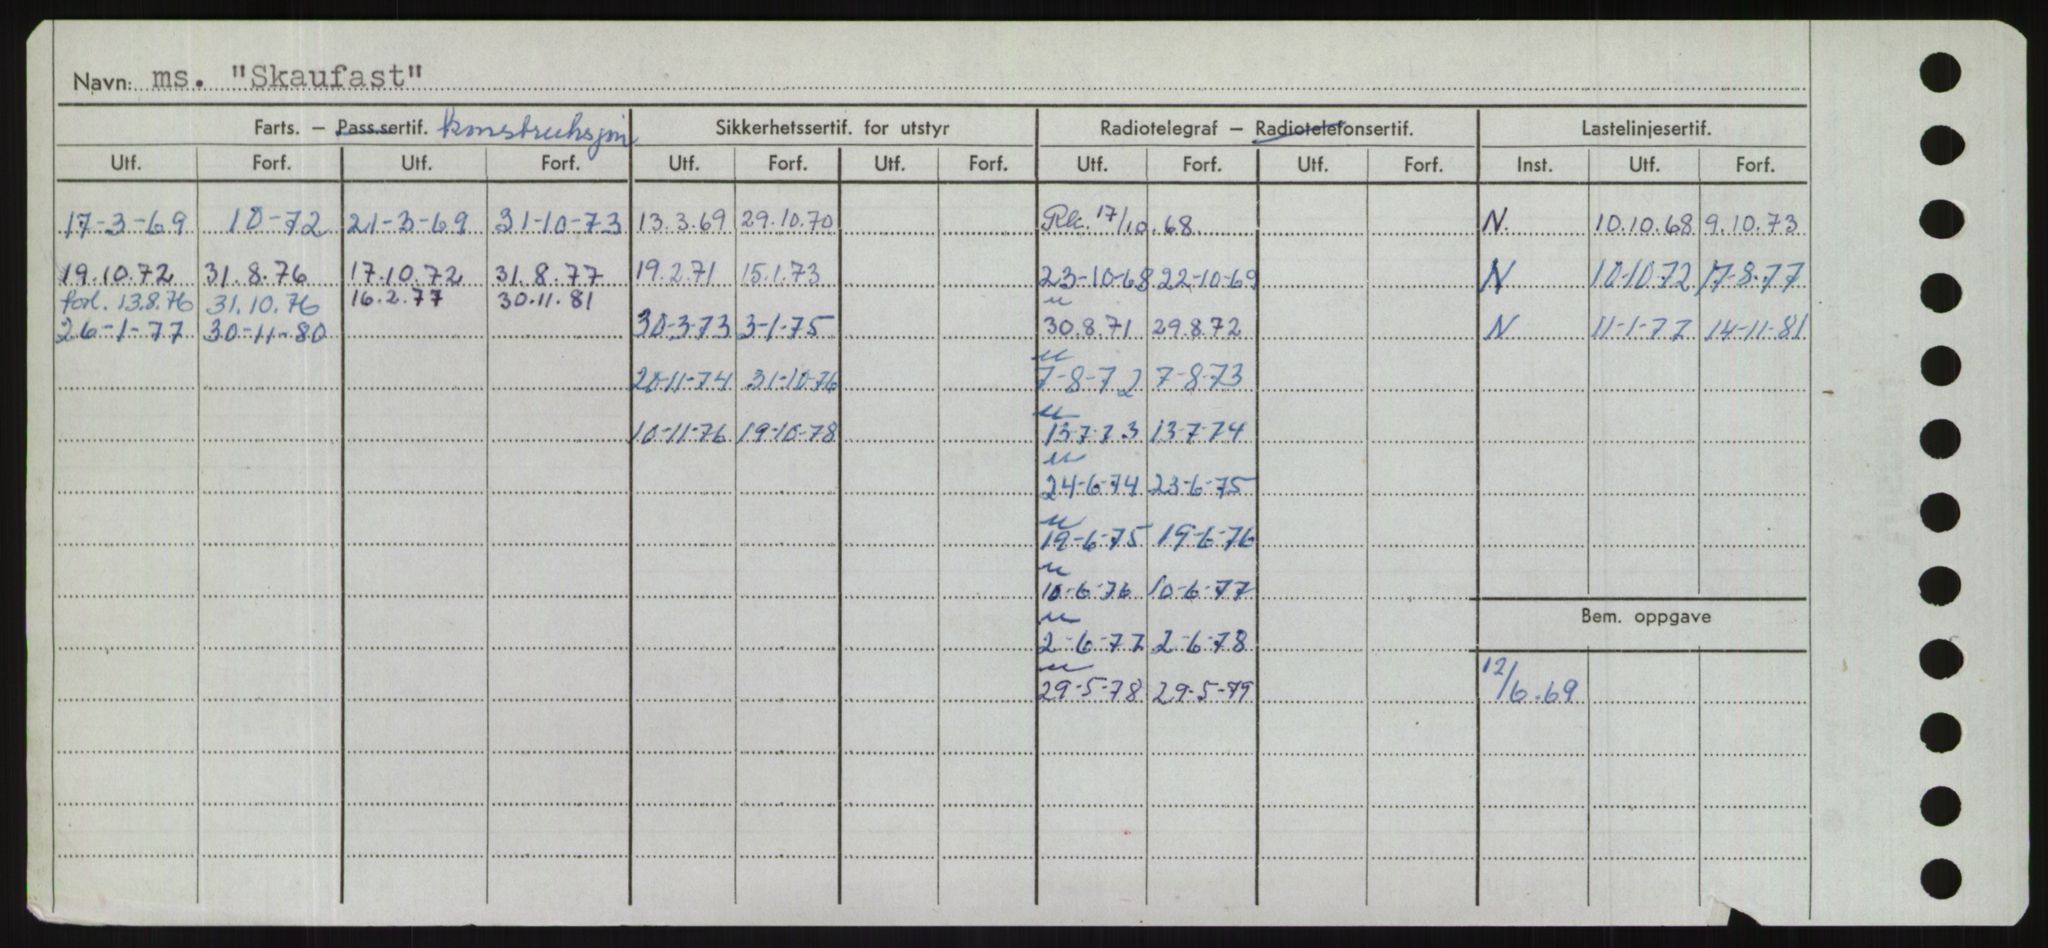 Navn: ms. "Skaufast"
Farts. – Pass.sertif. konstruksjon Sikkerhetssertif. for utstyr Radiotelegraf – Radiotelefonsertif. Lastelinjesertif.
Utf. Forf. Utf. Forf. Utf. Forf. Utf. Forf. Utf. Forf. Utf. Forf. Inst. Utf. Forf.
17-3-69 10-72 21-3-69 31-10-73 13.3.69 29.10.70 Rk. 17/10.68. N. 10.10.68 9.10.73
19.10.72 31.8.76 17.10.72 31.8.77 19.2.71 15.1.73 23-10-68 22-10-69 N 10-10-72 17-8-77
forl. 13.8.76 31.10.76 16.2.77 30.11.81
26-1-77 30-11-80 30-3-73 3-1-75 30.8.71 29.8.72 N 11-1-77 14-11-81
20-11-74 31-10-76 7-8-72 7-8-73
10-11-76 19-10-78 13-7-73 13-7-74
24-6-74 23-6-75
19-6-75 19-6-76
10-6-76 10-6-77
Bem. oppgave
2-6-77 2-6-78
29-5-78 29-5-79 12/6.69